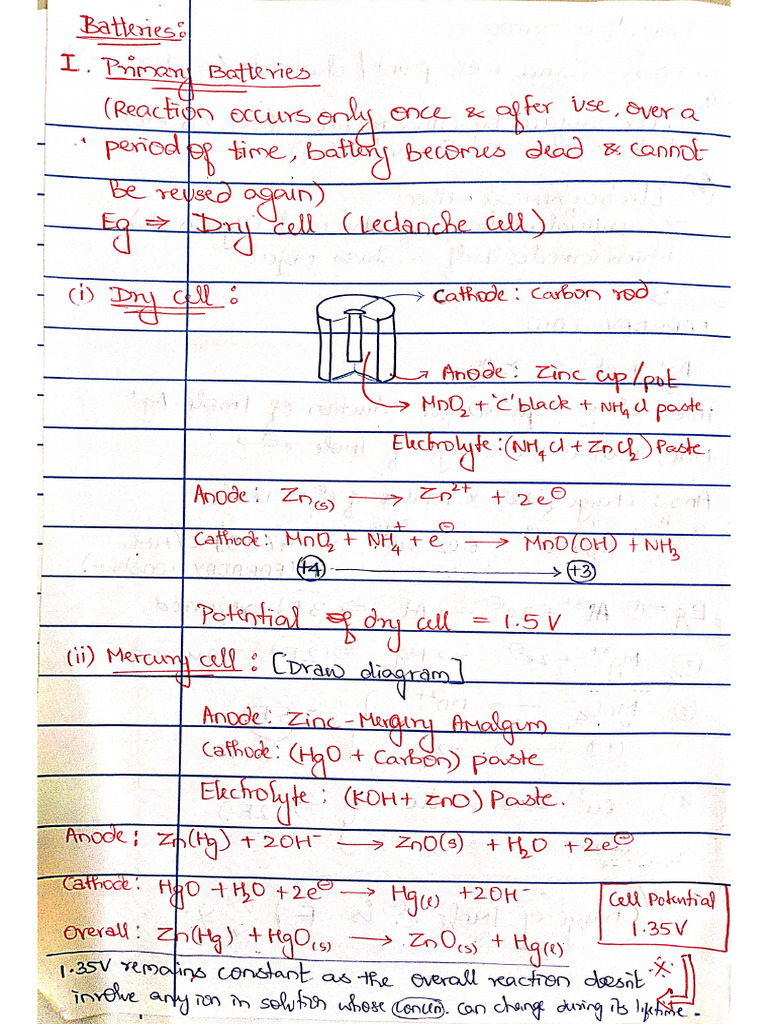 Batteries:
I. Primary Batteries
(Reaction occurs only once & after use, over a
period of time, Battery becomes dead & cannot
be reused again)
Eg ⇒ Dry cell (Leclanche cell)
(i) Dry cell:
→ Cathode: Carbon rod
→ Anode: Zinc cup/pot
→ MnO₂ + 'C' black + NH₄Cl paste
Electrolyte: (NH₄Cl + ZnCl₂) Paste
Anode: Zn(s) → Zn²⁺ + 2e⊖
Cathode: MnO₂ + NH₄⁺ + e⊖ → MnO(OH) + NH₃
+4 → +3
Potential of dry cell = 1.5 V
(ii) Mercury cell: [Draw diagram]
Anode: Zinc-Mergury Amalgum
Cathode: (HgO + Carbon) paste
Electrolyte: (KOH + ZnO) Paste.
Anode: Zn(Hg) + 2OH⁻ → ZnO(s) + H₂O + 2e⊖
Cathode: HgO + H₂O + 2e⊖ → Hg(l) + 2OH⁻
Cell Potential
1.35V
Overall: Zn(Hg) + HgO(s) → ZnO(s) + Hg(l)
1.35V remains constant as the overall reaction doesnt
involve any ion in solution whose concn. can change during its lifetime.